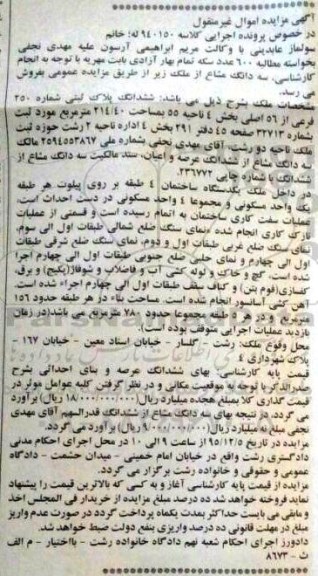 آگهی مزایده اموال غیرمنقول
در خصوص پرونده اجرایی کلاسه ۹۴۰۱۵۰ له: خانم
سولماز عابدینی با وکالت مریم ابراهیمی آرسون علیه مهدی نجفی
بخواسته مطالبه ۶۰۰ عدد سکه تمام بهار آزادی بابت مهریه با توجه به انجام
کارشناسی، سه دانگ مشاع از ملک زیر از طریق مزایده عمومی بفروش
می رسد.
مشخصات ملک بشرح ذیل می باشد: ششدانگ پلاک ثبتی شماره ۲۵۰
فرعی از ۵۶ اصلی بخش ۴ ناحیه ۵۵ بمساحت ۲۱۴/۴۰ مترمربع مورد ثبت
بشماره ۳۲۷۱۳ صفحه ۴۵ دفتر ۲۹۱ بخش ۴ اداره ناحیه ۲ رشت حوزه ثبت
ملک ناحیه دو رشت- آقای مهدی نجفی بشماره ملی ۲۵۹۴۵۵۳۸۶۷ مالک
سه دانگ مشاع از ششدانگ عرصه و اعیان، سند مالکیت سه دانگ مشاع از
ششدانگ با شماره چاپی ۲۳۶۷۷۲.
در داخل ملک یکدستگاه ساختمان ۴ طبقه بر روی پیلوت هر طبقه
یک واحد مسکونی و مجموعا ۴ واحد مسکونی در دست احداث است.
عملیات سفت کاری ساختمان به اتمام رسیده است و قسمتی از عملیات
نازک کاری انجام شده «نمای سنگ ضلع شمالی طبقات اول الی سوم،
نمای سنگ ضلع غربی طبقات اول و دوم، نمای سنگ ضلع شرقی طبقات
اول الی چهارم و نمای حلبی ضلع جنوبی طبقات اول الی چهارم اجرا
شده است. گچ و خاک و لوله کشی آب و فاضلاب و شوفاژ(پکیج) و برق،
کفسازی(فوم بتن) و کناف سقف طبقات اول الی چهارم اجراء شده است.
آهن کشی آسانسور انجام شده است. مساحت بناء در هر طبقه حدود ۱۵۶
مترمربع و در ۵ طبقه مجموعا حدود ۷۸۰ مترمربع می باشد(در زمان
بازدید عملیات اجرایی متوقف بوده است).
محل وقوع ملک: رشت - گلسار - خیابان استاد معین - خیابان ۱۶۷ -
پلاک شهرداری ۴
قیمت پایه کارشناسی: بهای ششدانگ عرصه و بنای احداثی بشرح
صدرالذکر با توجه به موقعیت مکانی و در نظر گرفتن کلیه عوامل موثر در
قیمت گذاری کلا بمبلغ هجده میلیارد ریال(۱۸/۰۰۰/۰۰۰/۰۰۰ ریال) برآورد
می گردد. در نتیجه بهای سه دانگ مشاع از ششدانگ قدرالسهم آقای مهدی
نجفی مبلغ نه میلیارد ریال(۹/۰۰۰/۰۰۰/۰۰۰ ریال) برآورد می گردد.
مزایده در تاریخ ۹۵/۱۲/۵ از ساعت ۹ الی ۱۰ در محل اجرای احکام مدنی
دادگستری رشت واقع در خیابان امام خمینی - میدان حشمت - دادگاه
عمومی و حقوقی و خانواده رشت برگزار می گردد.
مزایده از قیمت پایه کارشناسی آغاز و به کسی که بالاترین قیمت را پیشنهاد
نماید فروخته خواهد شد. ده درصد مبلغ مزایده از خریدار فی المجلس اخذ
و مابقی می بایست حداکثر بمدت یکماه پرداخت گردد در صورت عدم واریز
مبلغ در مهلت قانونی ده درصد واریزی بنفع دولت ضبط خواهد شد.
دادورز اجرای احکام شعبه نهم دادگاه خانواده رشت - بااختیار - م الف
ث - ۸۶۷۳